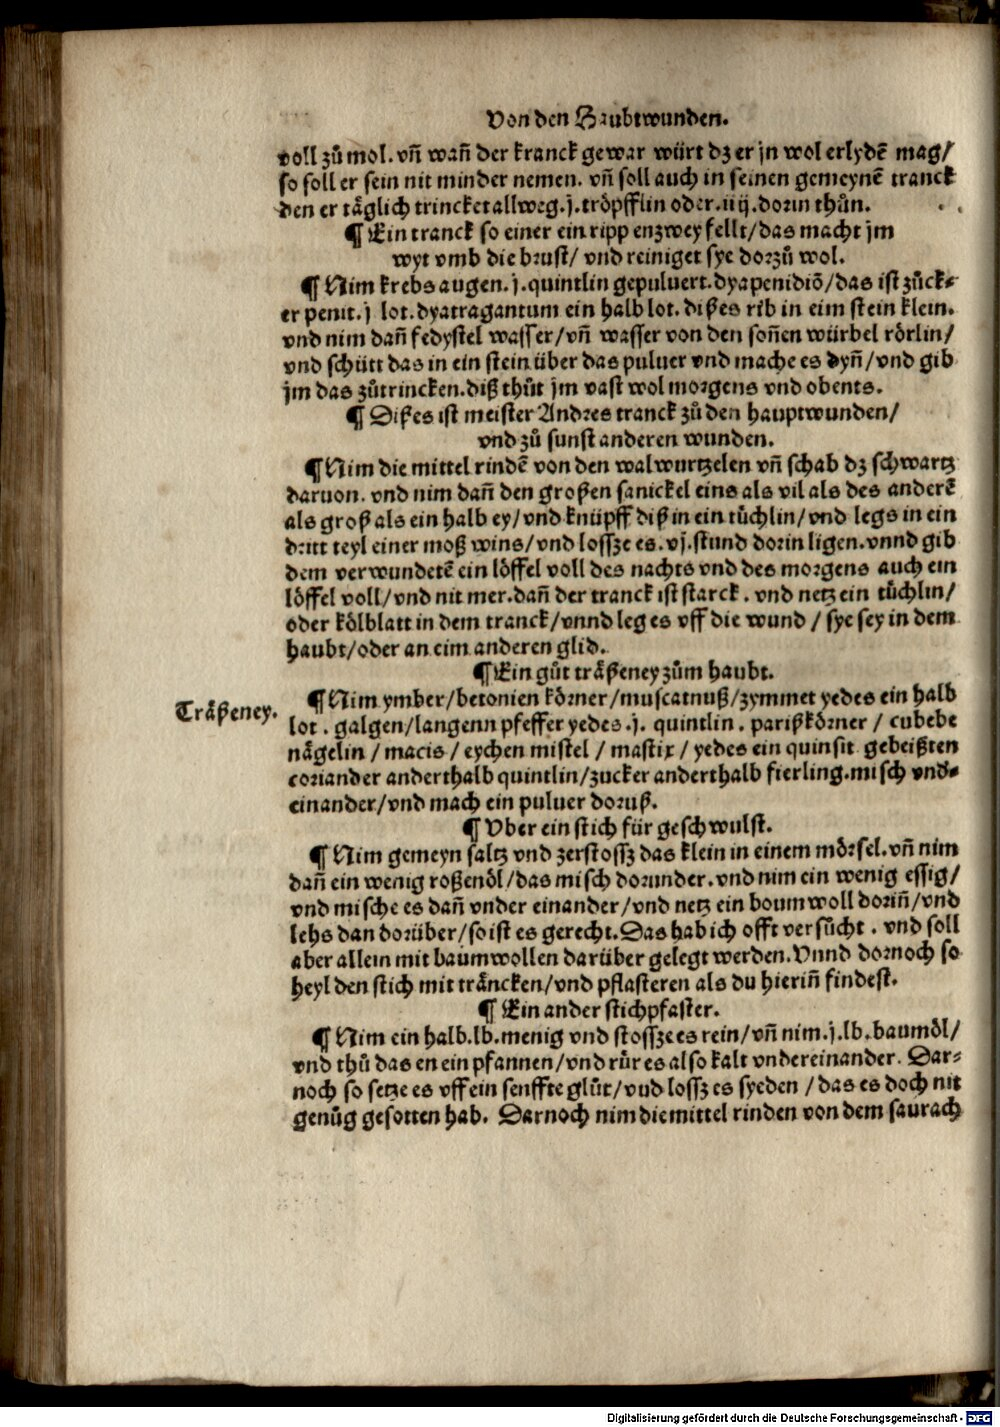 Von den Haubtwunden.
voll zů mol. vñ wañ der kranck gewar würt dz er jn wol erlydē mag/
so soll er sein nit minder nemen. vñ soll auch in seinen gemeynē tranck
den er täglich trincket allweg. j. tröpfflin oder. iij. dorin thůn.
¶ Ein tranck so einer ein ripp enzwey fellt/ das macht jm
wyt vmb die brust/ vnd reiniget sye dorzů wol.
¶ Nim krebs augen. j. quintlin gepuluert. dyapenidiō/ das ist zůck⸗
er penit. j lot. dyatragantum ein halb lot. dißes rib in eim stein klein.
vnd nim dañ fedystel wasser/ vñ wasser von den soñen würbel rörlin/
vnd schütt das in ein stein über das puluer vnd mache es dyñ/ vnd gib
jm das zůtrincken. diß thůt jm vast wol morgens vnd obents.
¶ Dißes ist meister Andres tranck zů den hauptwunden/
vnd zů sunst anderen wunden.
¶ Nim die mittel rindē von den walwurtzelen vñ schab dz schwartz
daruon. vnd nim dañ den großen sanickel eins als vil als des anderē
als groß als ein halb ey/ vnd knüpff diß in ein tůchlin/ vnd legs in ein
dritt teyl einer moß wins/ vnd lossze es. vj. stund dorin ligen. vnnd gib
dem verwundetē ein löffel voll des nachts vnd des morgens auch ein
löffel voll/ vnd nit mer. dañ der tranck ist starck. vnd netz ein tůchlin/
oder kölblatt in dem tranck/ vnnd leg es vff die wund / sye sey in dem
haubt/ oder an eim anderen glid.
¶ Ein gůt träßeney zům haubt.
Träßeney.
¶ Nim ymber/ betonien körner/ muscatnuß/ zymmet yedes ein halb
lot. galgen/ langenn pfeffer yedes. j. quintlin. parißkörner / cubebe
nägelin / macis / eychen mistel / mastix / yedes ein quinsit gebeißten
coriander anderthalb quintlin/ zucker anderthalb fierling. misch vnd⸗
einander/ vnd mach ein puluer doruß.
¶ Vber ein stich für geschwulst.
¶ Nim gemeyn saltz vnd zerstossz das klein in einem mörsel. vñ nim
dañ ein wenig roßenöl/ das misch dorunder. vnd nim ein wenig essig/
vnd mische es dañ vnder einander/ vnd netz ein boumwoll doriñ/ vnd
lehs dan dorüber/ so ist es gerecht. Das hab ich offt versůcht. vnd soll
aber allein mit baumwollen darüber gelegt werden. Vnnd dornoch so
heyl den stich mit träncken/ vnd pflasteren als du hieriñ findest.
¶ Ein ander stichpfaster.
¶ Nim ein halb. lb. menig vnd stossze es rein/ vñ nim. j. lb. baumöl/
vnd thů das en ein pfannen/ vnd rür es also kalt vndereinander. Dar⸗
noch so setze es vff ein senffte glůt/ vud lossz es syeden / das es doch nit
genůg gesotten hab. Darnoch nim die mittel rinden von dem saurach
Digitalisierung gefördert durch die Deutsche Forschungsgemeinschaft - DFG